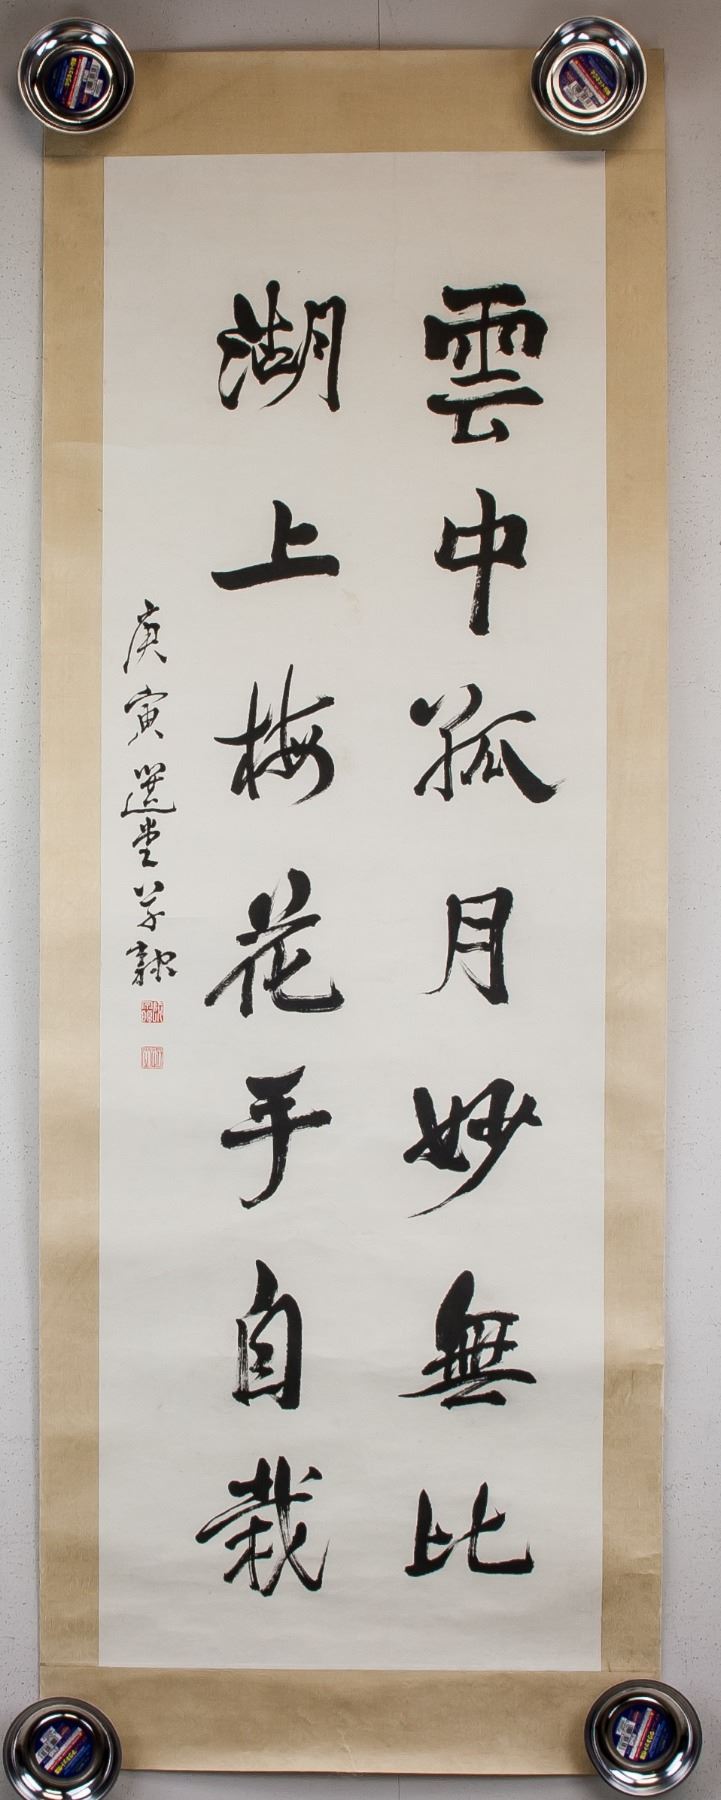 雲中孤月妙無比
湖上梅花手自栽
庚寅選堂草隸